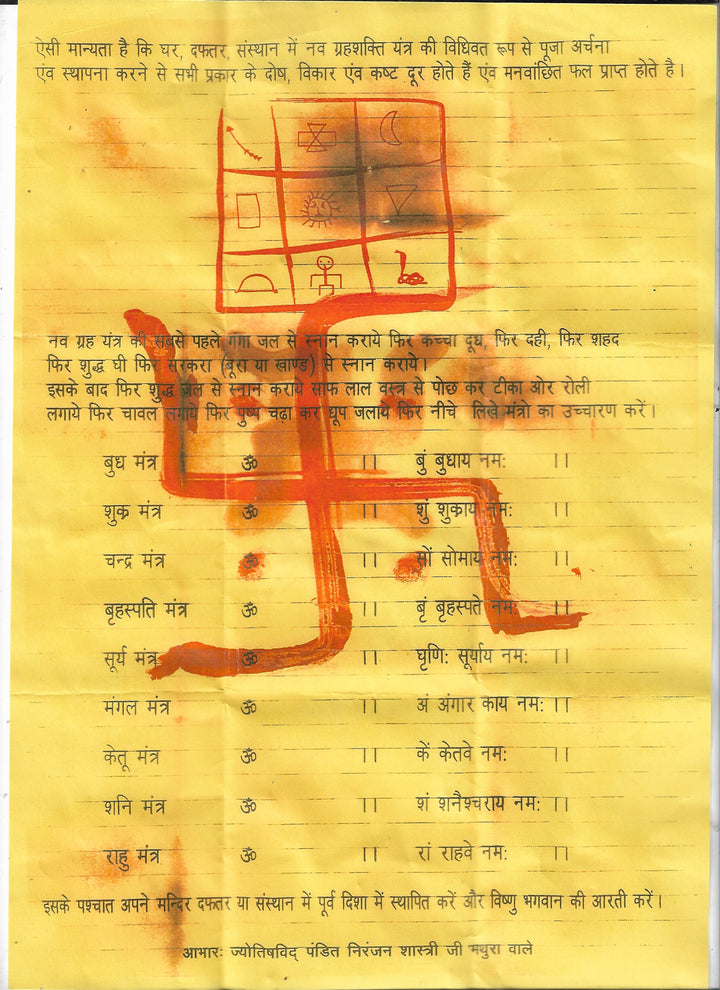 ऐसी मान्यता है कि घर, दफतर, संस्थान में नव ग्रहशक्ति यंत्र की विधिवत रूप से पूजा अर्चना
एंव स्थापना करने से सभी प्रकार के दोष, विकार एंव कष्ट दूर होते हैं एंव मनवांछित फल प्राप्त होते है।
नव ग्रह यंत्र की सबसे पहले गंगा जल से स्नान कराये फिर कच्चा दूध, फिर दही, फिर शहद
फिर शुद्ध घी फिर सरकरा (बूरा या खाण्ड) से स्नान कराये।
इसके बाद फिर शुद्ध जल से स्नान कराये साफ लाल वस्त्र से पोछ कर टीका ओर रोली
लगाये फिर चावल लगाये फिर पुष्प चढ़ा कर धूप जलाये फिर नीचे लिखे मंत्रो का उच्चारण करें।
बुध मंत्र ॐ ।। बुं बुधाय नमः ।।
शुक्र मंत्र ॐ ।। शुं शुक्राय नमः ।।
चन्द्र मंत्र ॐ ।। सों सोमाय नमः ।।
बृहस्पति मंत्र ॐ ।। बृं बृहस्पते नमः ।।
सूर्य मंत्र ॐ ।। घृणिः सूर्याय नमः ।।
मंगल मंत्र ॐ ।। अं अंगार काय नमः ।।
केतू मंत्र ॐ ।। कें केतवे नमः ।।
शनि मंत्र ॐ ।। शं शनैश्चराय नमः ।।
राहु मंत्र ॐ ।। रां राहवे नमः ।।
इसके पश्चात अपने मन्दिर दफतर या संस्थान में पूर्व दिशा में स्थापित करें और विष्णु भगवान की आरती करें।
आभारः ज्योतिषविद् पंडित निरंजन शास्त्री जी मथुरा वाले